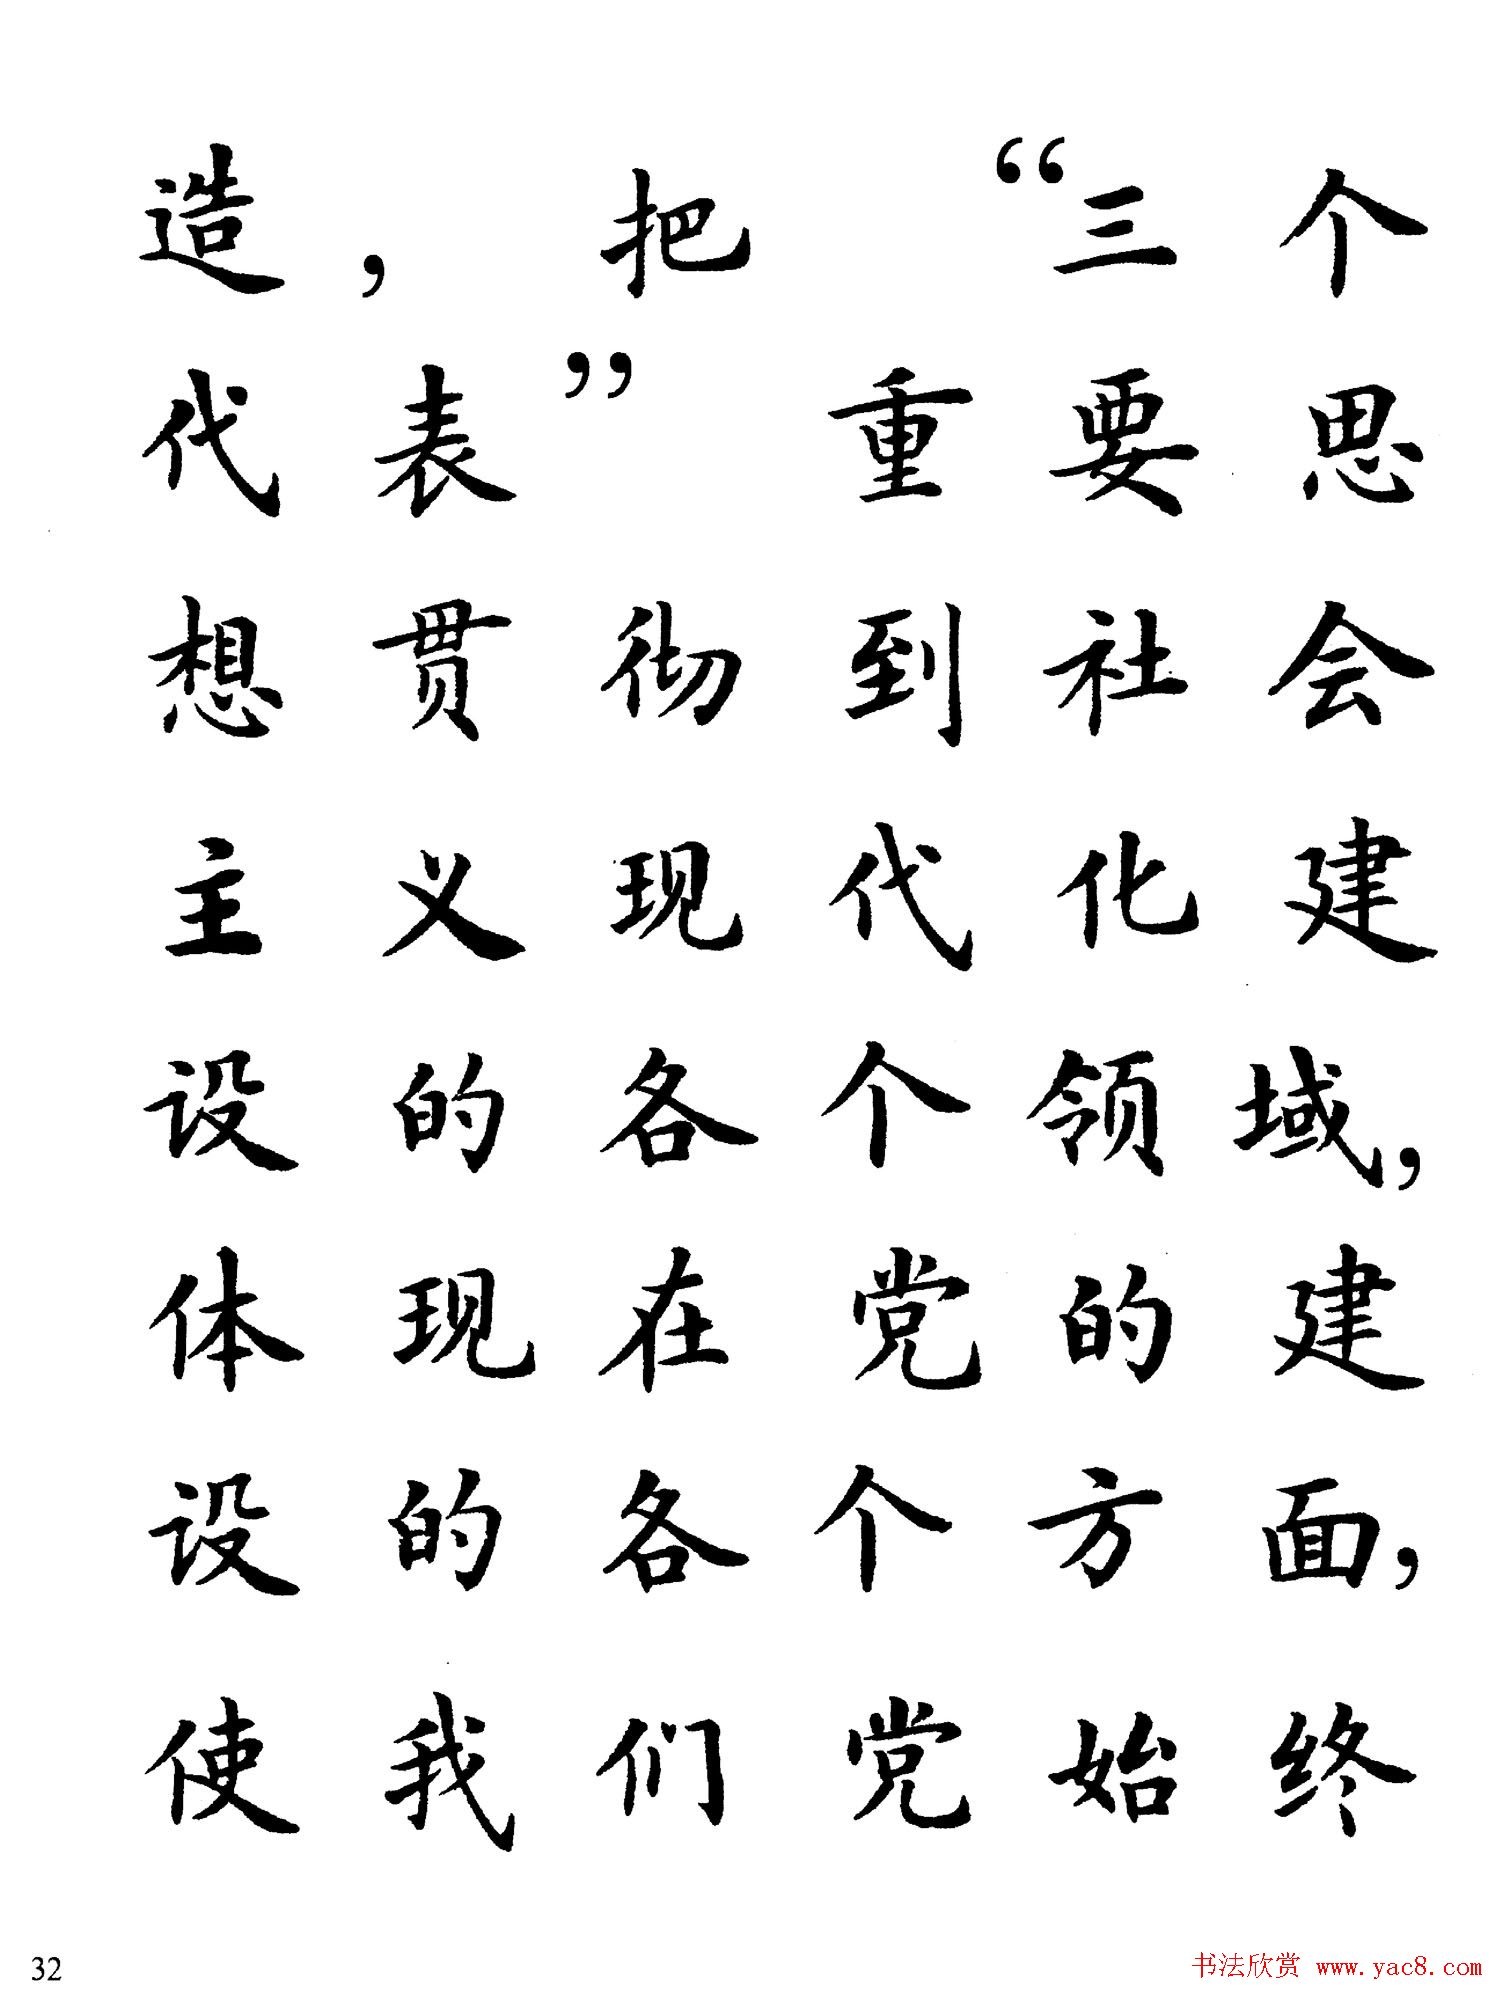 造，把“三个
代表”重要思
想贯彻到社会
主义现代化建
设的各个领域，
体现在党的建
设的各个方面，
使我们党始终
32
书法欣赏 www.yac8.com